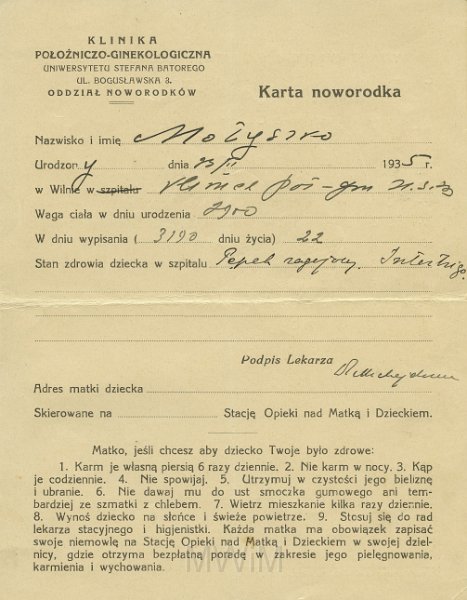 KLINIKA
POŁOŻNICZO-GINEKOLOGICZNA
UNIWERSYTETU STEFANA BATOREGO
UL. BOGUSŁAWSKA 3.
ODDZIAŁ NOWORODKÓW
Karta noworodka
Nazwisko i imię Mołyszko
Urodzony dnia 23/II 1935 r.
w Wilnie w szpitalu Klinice poł-gin U.S.B
Waga ciała w dniu urodzenia 2900
W dniu wypisania ( 3190 dniu życia) 22
Stan zdrowia dziecka w szpitalu Pępek zagojony. Intertrigo.
Podpis Lekarza
Adres matki dziecka
Skierowane na Stację Opieki nad Matką i Dzieckiem.
Matko, jeśli chcesz aby dziecko Twoje było zdrowe:
1. Karm je własną piersią 6 razy dziennie. 2. Nie karm w nocy. 3. Kąp
je codziennie. 4. Nie spowijaj. 5. Utrzymuj w czystości jego bieliznę
i ubranie. 6. Nie dawaj mu do ust smoczka gumowego ani tem-
bardziej ze szmatki z chlebem. 7. Wietrz mieszkanie kilka razy dziennie.
8. Wynoś dziecko na słońce i świeże powietrze. 9. Stosuj się do rad
lekarza stacyjnego i higjenistki. Każda matka ma obowiązek zapisać
swoje niemowlę na Stację Opieki nad Matką i Dzieckiem w swojej dziel-
nicy, gdzie otrzyma bezpłatną poradę w zakresie jego pielęgnowania,
karmienia i wychowania.
MWiM